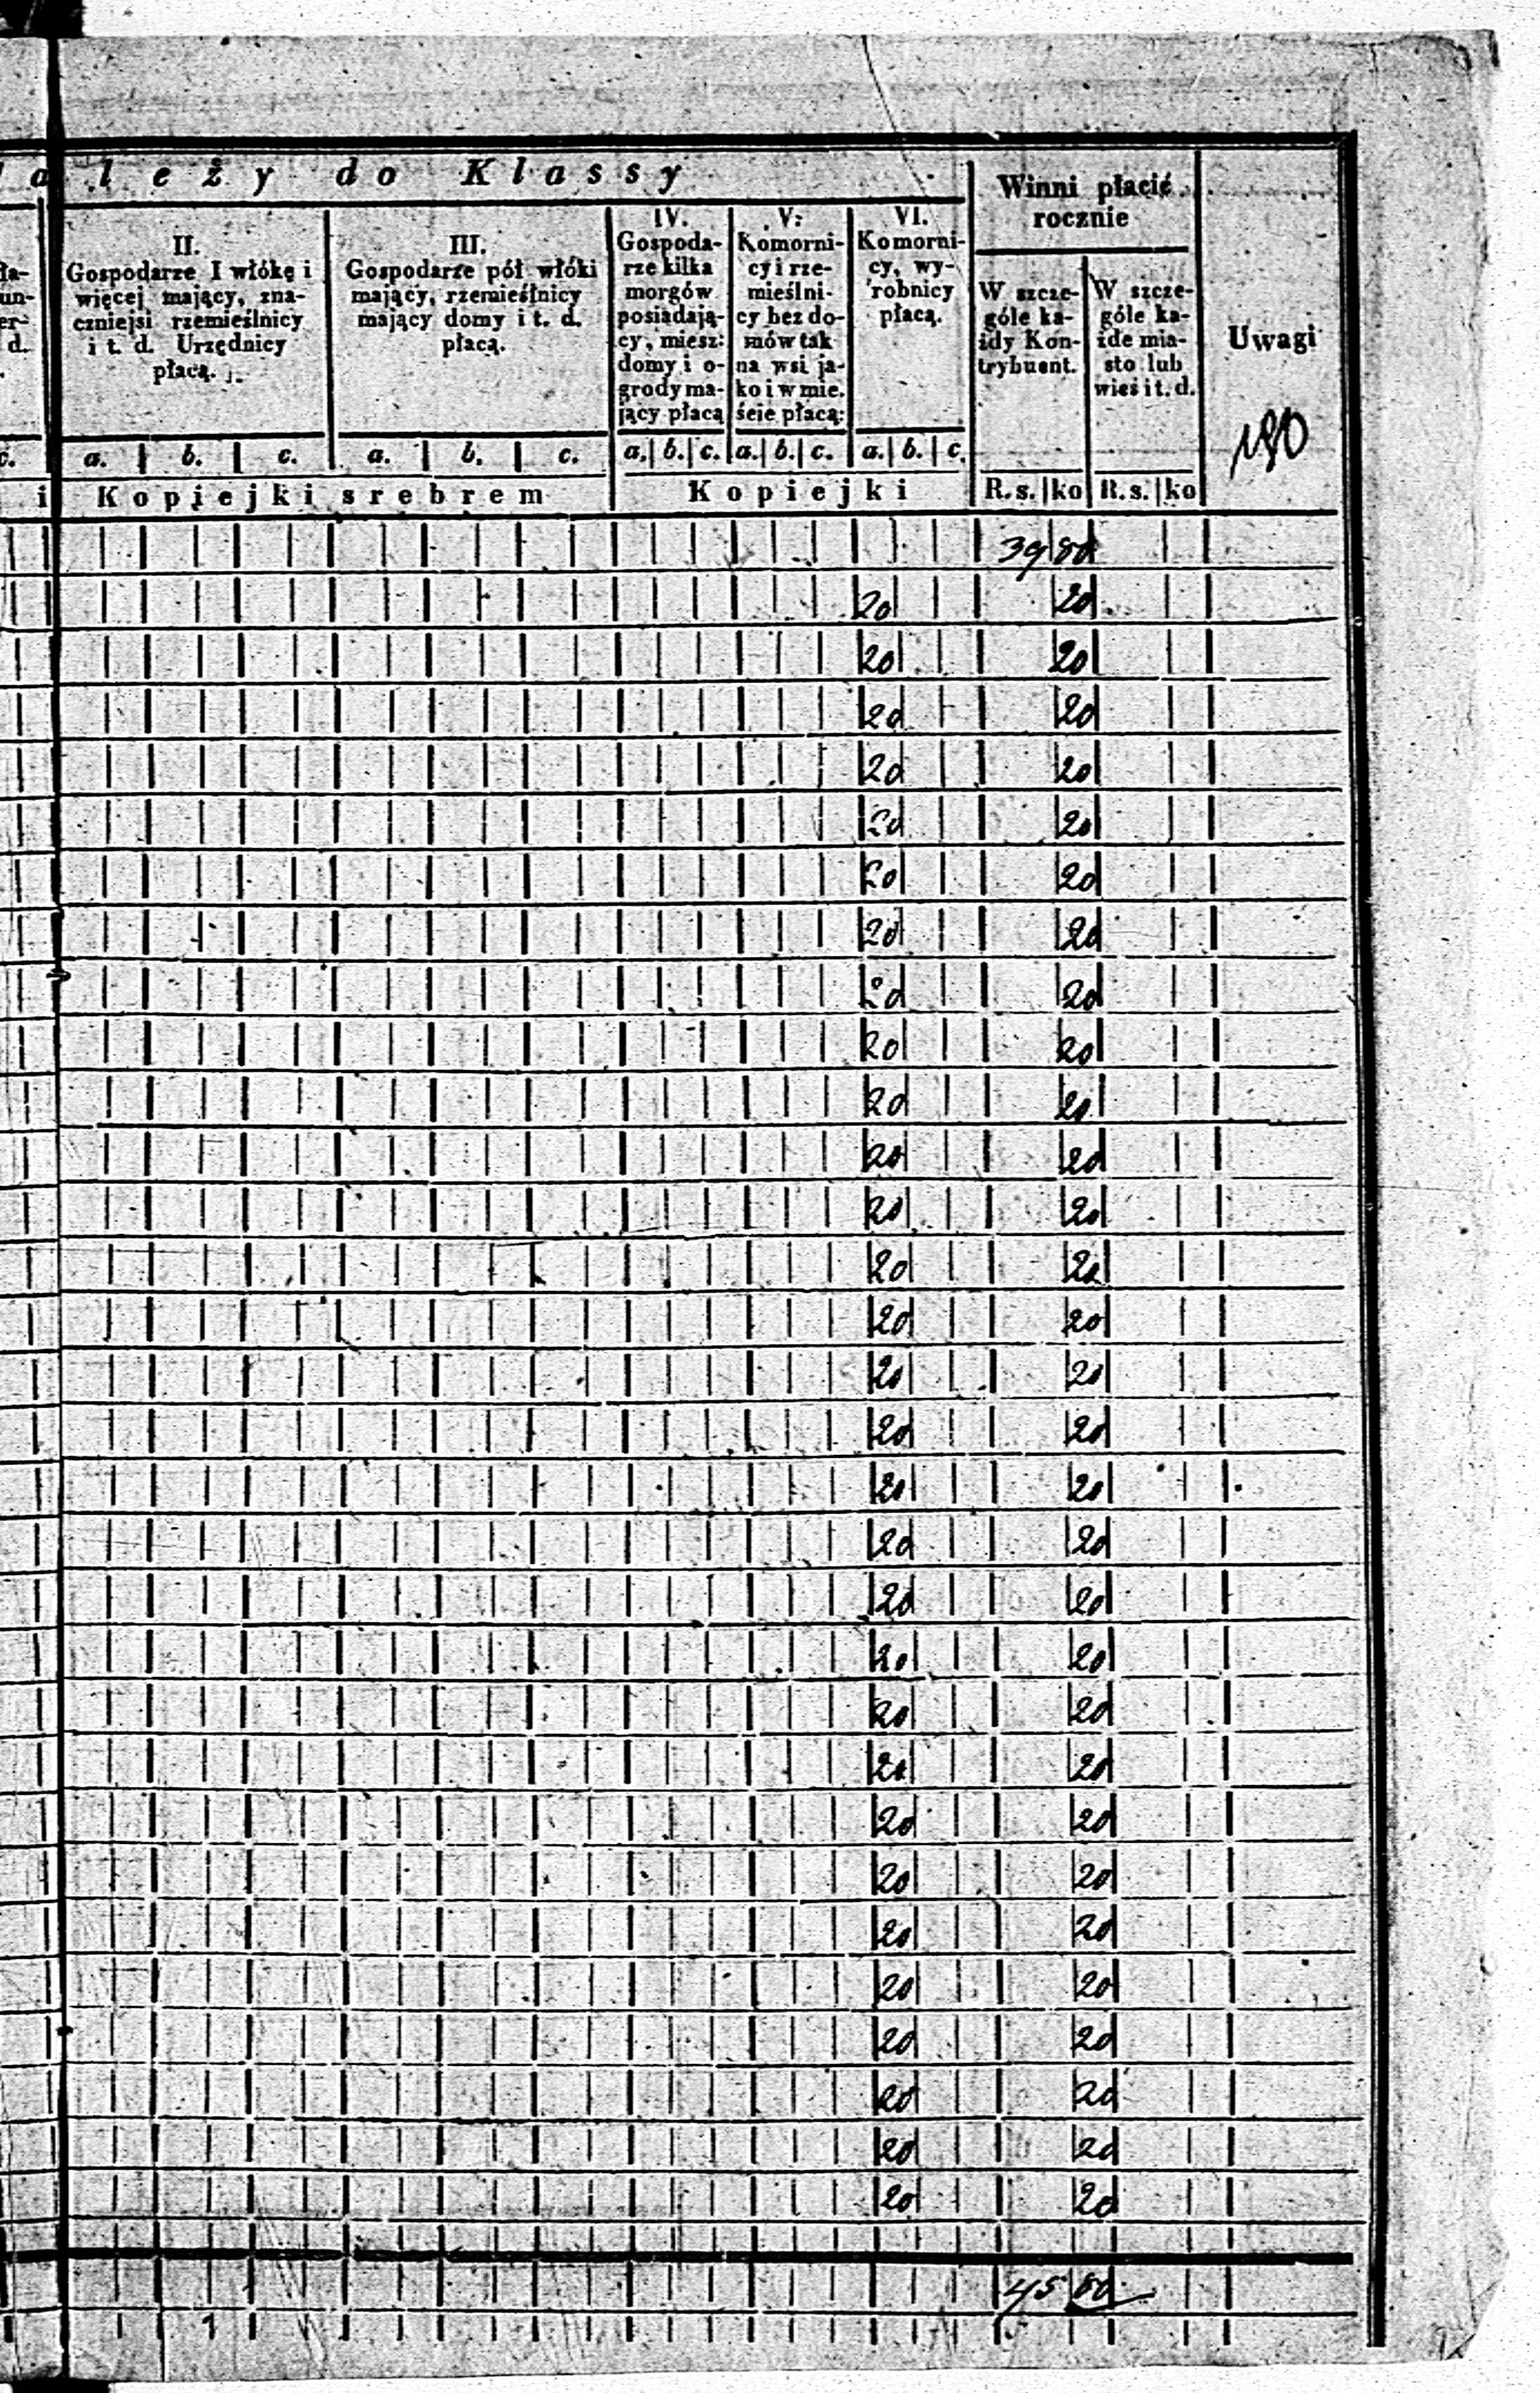 a l e ż y d o K l a s s y
Winni płacić
rocznie
Uwagi
190
II.
Gospodarze I włókę i
więcej mający, zna-
czniejsi rzemieślnicy
i t. d. Urzędnicy
płacą.
III.
Gospodarze pół włóki
mający, rzemieślnicy
mający domy i t. d.
płacą.
IV.
Gospoda-
rze kilka
morgów
posiadają-
cy, miesz:
domy i o-
grody ma-
jący płacą
V:
Komorni-
cy i rze-
mieślni-
cy bez do-
mów tak
na wsi ja-
ko i w mie.
ście płacą:
VI.
Komorni-
cy, wy-
robnicy
płacą.
W szcze-
góle ka-
żdy Kon-
trybuent.
W szcze-
góle ka-
żde mia-
sto lub
wieś i t. d.
c. a. b. c. a. b. c. a. b. c. a. b. c. a. b. c.
i K o p i e j k i s r e b r e m K o p i e j k i R. s. ko R. s. ko
39 80
20 20
20 20
20 20
20 20
20 20
20 20
20 20
20 20
20 20
20 20
20 20
20 20
20 20
20 20
20 20
20 20
20 20
20 20
20 20
20 20
20 20
20 20
20 20
20 20
20 20
20 20
20 20
20 20
20 20
20 20
45 80